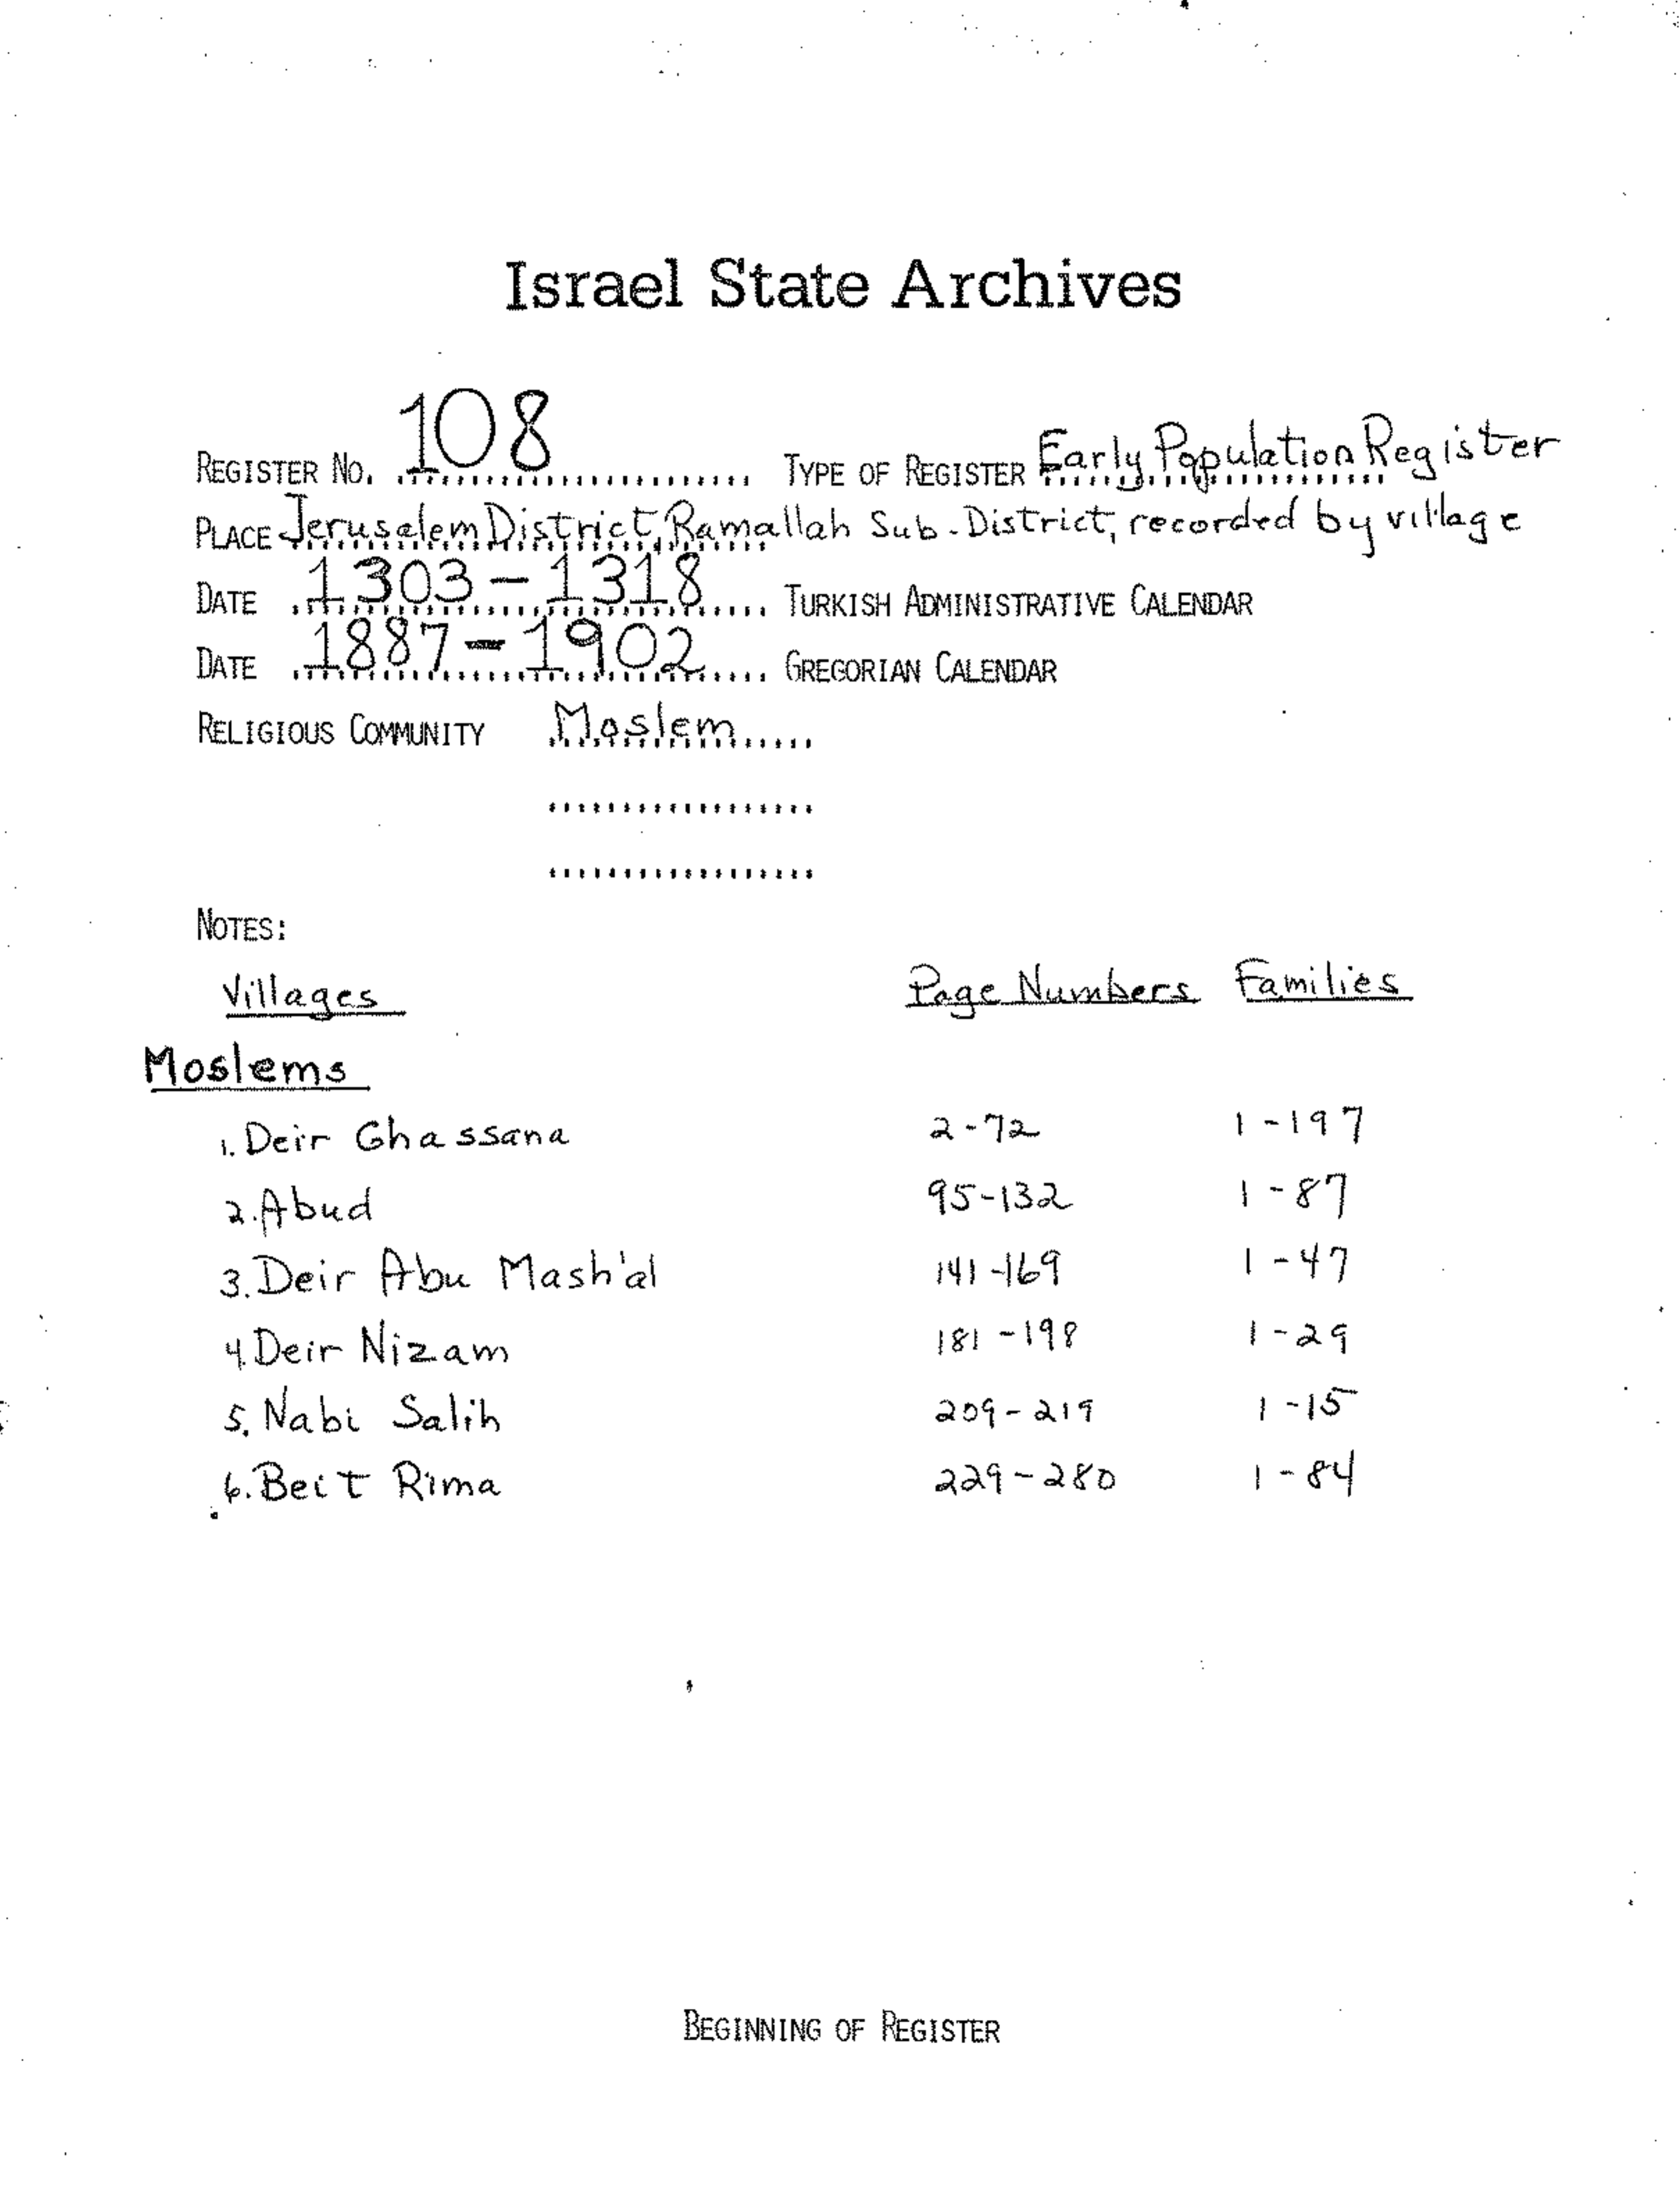 Israel State Archives
REGISTER NO. 108 TYPE OF REGISTER Early Population Register
PLACE Jerusalem District, Ramallah Sub-District, recorded by village
DATE 1303-1318 TURKISH ADMINISTRATIVE CALENDAR
DATE 1887-1902 GREGORIAN CALENDAR
RELIGIOUS COMMUNITY Moslem
NOTES:
Villages Page Numbers Families
Moslems
1. Deir Ghassana 2-72 1-197
2. Abud 95-132 1-87
3. Deir Abu Mash'al 141-169 1-47
4. Deir Nizam 181-198 1-29
5. Nabi Salih 209-219 1-15
6. Beit Rima 229-280 1-84
BEGINNING OF REGISTER